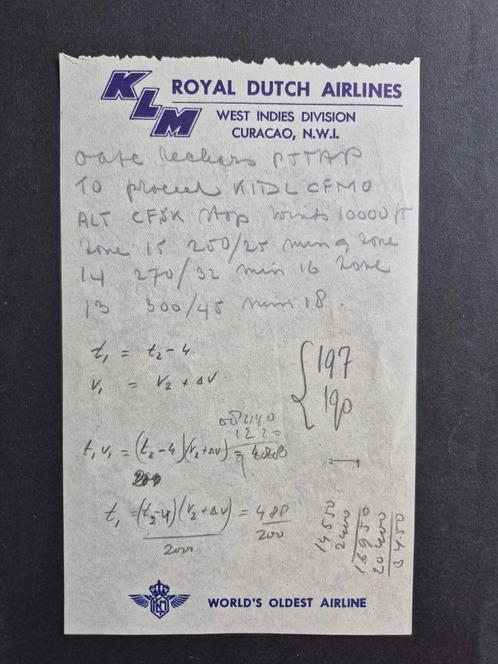 KLM
ROYAL DUTCH AIRLINES
WEST INDIES DIVISION
CURACAO, N.W.I.
PJTAP
TO proceed KITDL CFMO
ALT CFSK stop winds 10000 ft
zone 15 250/25 min 9 zone
14 270/32 min 16 zone
13 300/45 min 18.
t₁ = t₂-4
V₁ = V₂ + ΔV
{197
190
t₁ V₁ = (t₂-4)(V₂+ΔV) =
1220
200
t₁ = (t₂-4)(V₂+ΔV) = 488
2000 200
14550
2400
16950
20400
3450
KLM
WORLD'S OLDEST AIRLINE